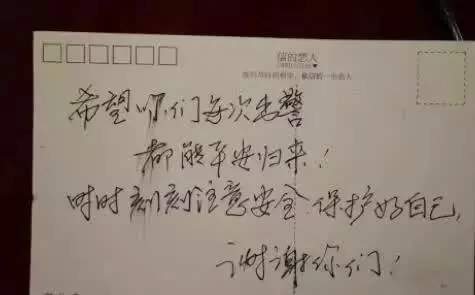 希望你们每次出警
都能平安归来！
时时刻刻注意安全 保护好自己，
谢谢你们！